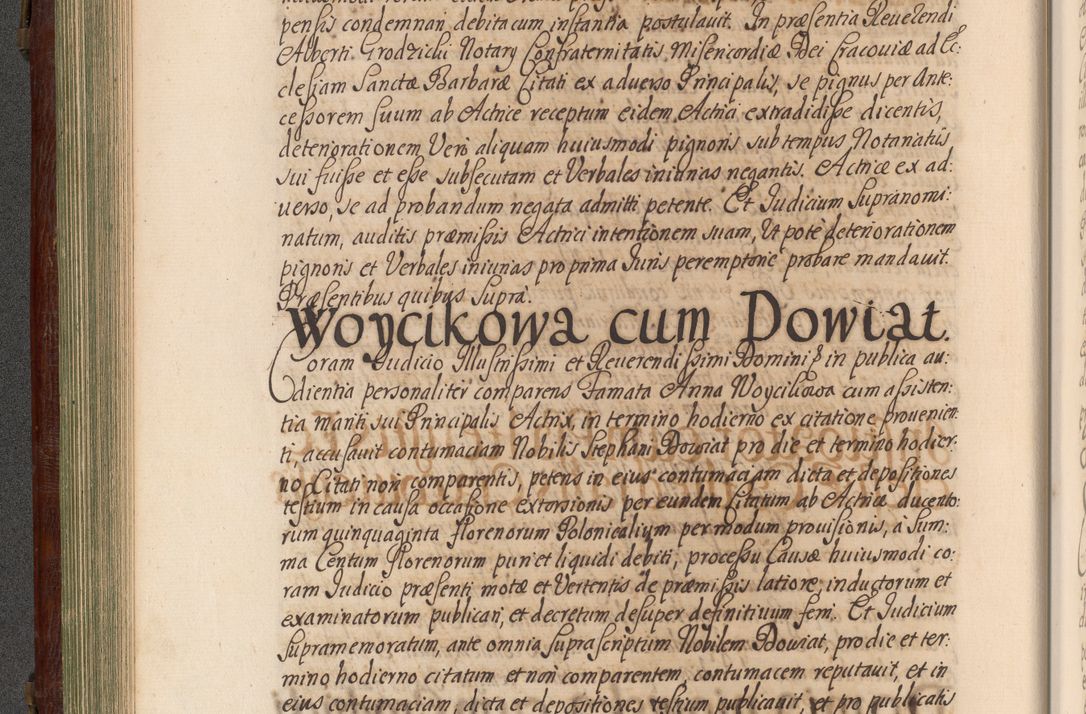 pensis condemnari, debita cum instantia postulavit. In præsentia Reverendi
Alberti Grodzicki Notary Confraternitatis Misericordiæ Dei Cracoviæ ad Ec:
clesiam Sanctæ Barbaræ Citati ex adverso Principalis, se pignus per Ante:
cessorem suum ab Actrice receptum eidem Actrici extradidisse dicentis,
deteriorationem Vero aliquam huiusmodi pignoris sub tempus Notariatus
sui fuisse et esse subsecutam et Verbales iniurias negantis. Actrice ex ad:
verso, se ad probandum negata admitti petente. Et Judicium Supranomi:
natum, auditis præmissis Actrici intentionem suam, Ut pote deteriorationem
pignoris et Verbales iniurias pro prima Juris peremptorie probare mandavit.
Præsentibus quibus supra.
Woycikowa cum Dowiat.
Coram Judicio Illustrissimi et Reverendissimi Domini in publica au:
dientia personaliter comparens Famata Anna Woycikowa cum assisten:
tia mariti sui Principalis Actrix, in termino hodierno ex citatione provenien:
ti, accusavit contumaciam Nobilis Stephani Dowiat pro die et termino hodier:
no Citati non comparentis, petens in eius contumaciam dicta et depositiones
testium in causa occasione extorsionis per eundem Citatum ab Actrice ducento:
rum quinquaginta florenorum Polonicalium per modum provisionis, à Sum:
ma Centum florenorum puri et liquidi debiti, processu Causæ huiusmodi co:
ram Judicio præsenti motæ et Vertentis de præmissis latiore, inductorum et
examinatorum publicari, et decretum desuper definitivum ferri. Et Judicium
supramemoratum, ante omnia suprascriptum Nobilem Dowiat, pro die et ter:
mino hodierno citatum et non comparentem, contumacem reputavit, et in
eius contumaciam, dicta et depositiones testium publicavit, et pro publicatis